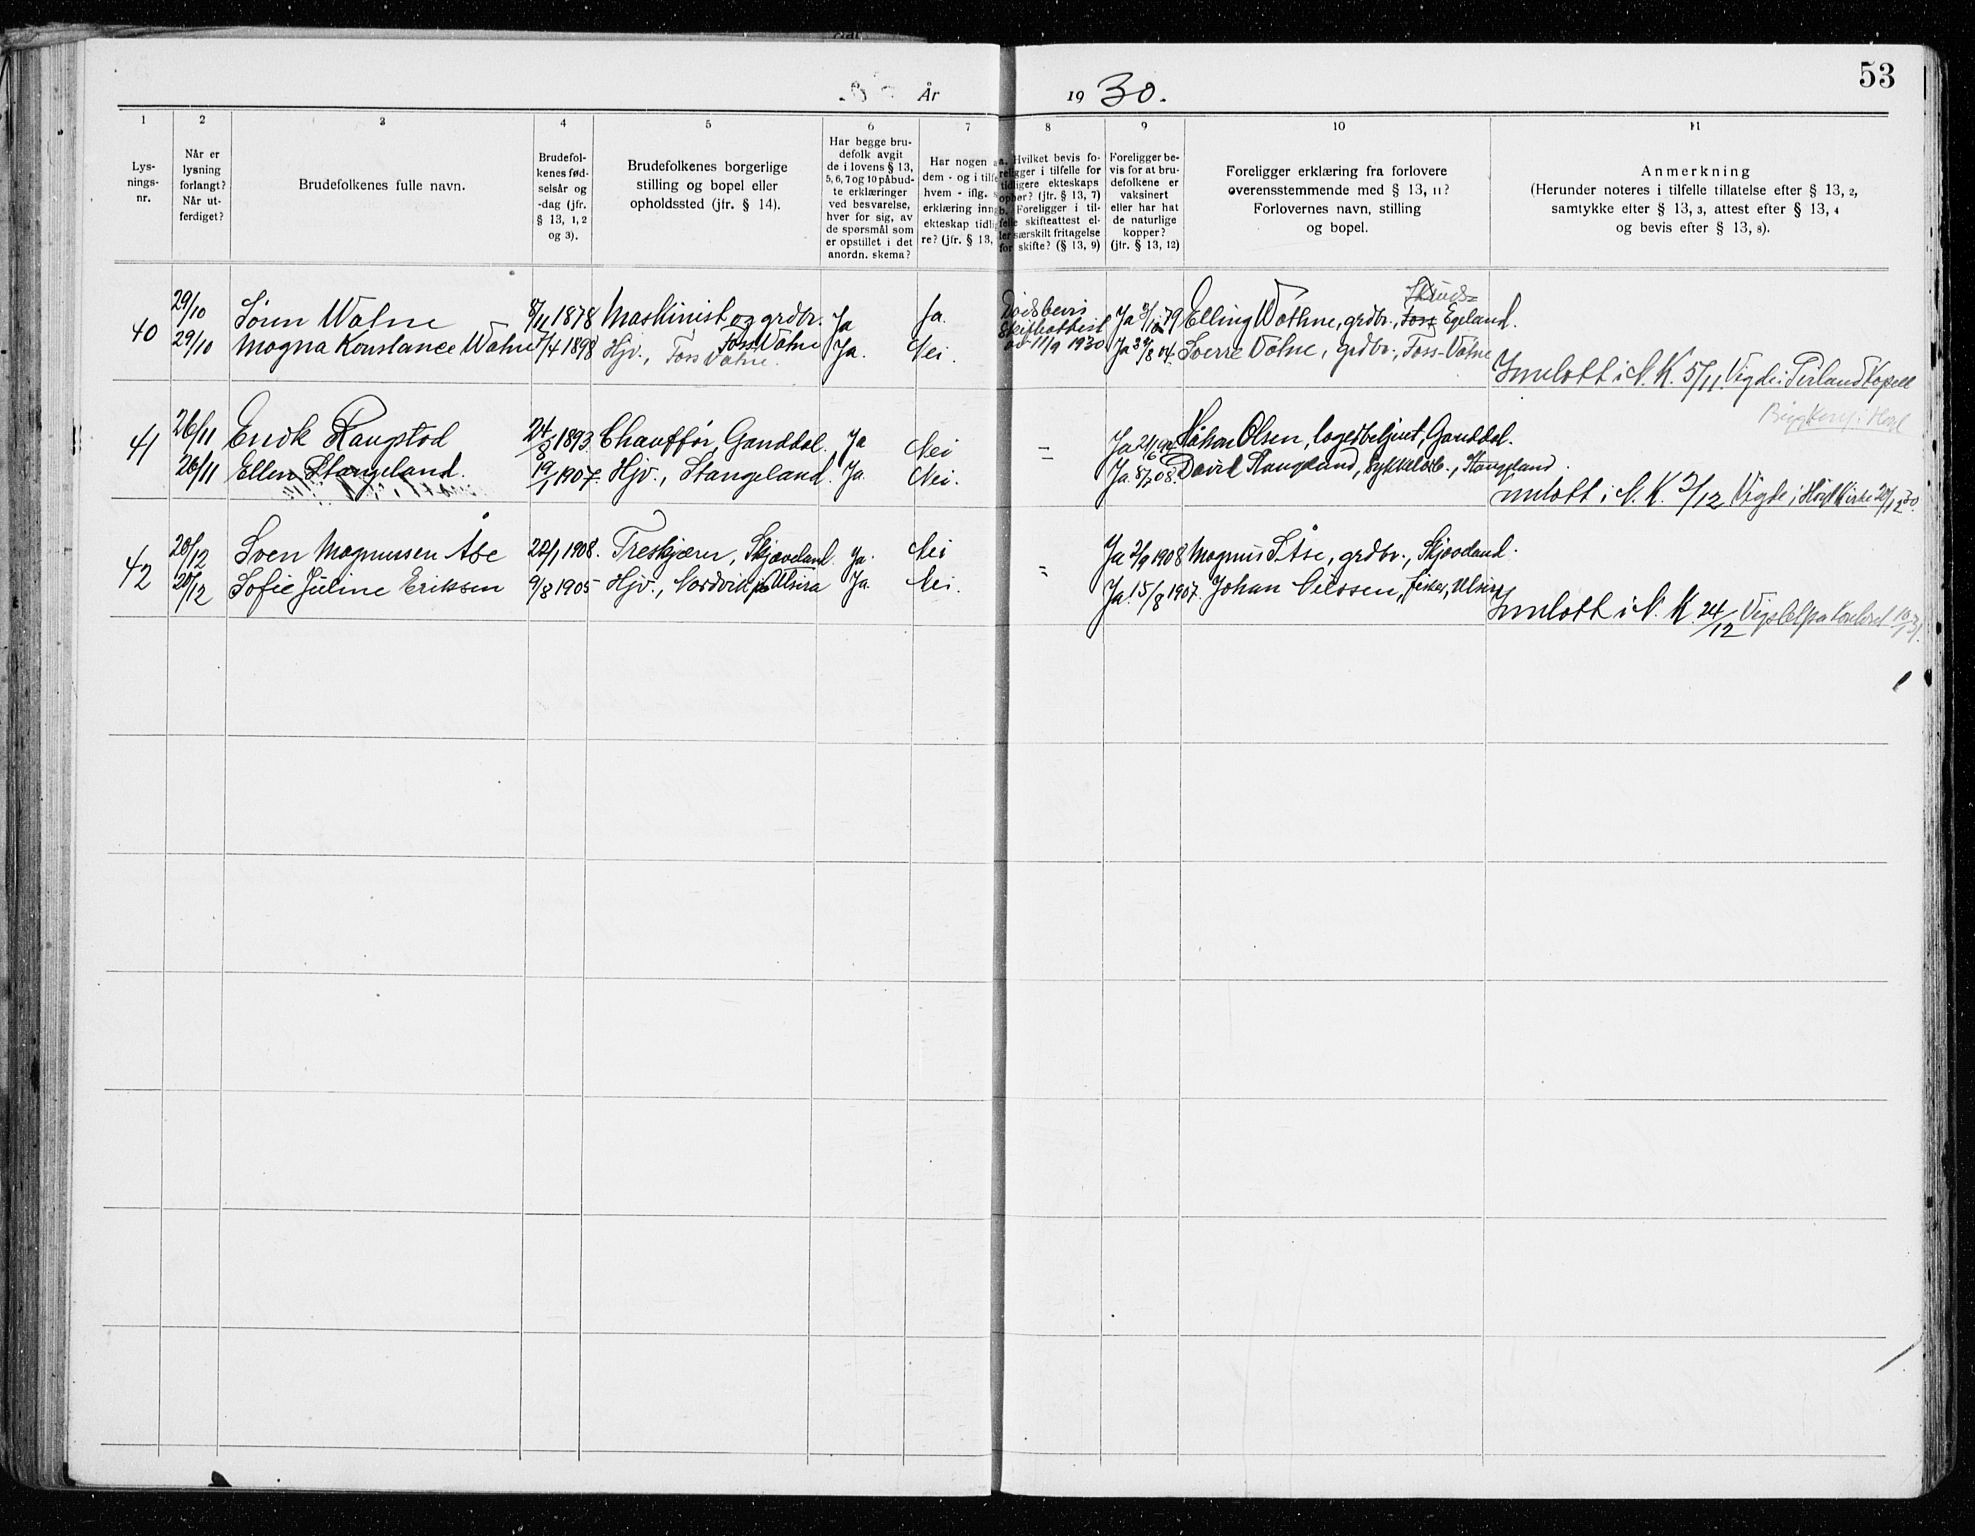 53
År 1930.
1
2
3
4
5
6
7
8
9
10
11
Lys-
nings-
nr.
Når er
lysning
forlangt?
Når ut-
ferdiget?
Brudefolkenes fulle navn.
Brudefol-
kenes fød-
selsår og
-dag (jfr.
§ 13, 1, 2
og 3).
Brudefolkenes borgerlige
stilling og bopel eller
opholdssted (jfr. § 14).
Har begge bru-
defolk avgit
de i lovens § 13,
5, 6, 7 og 10 påbud-
te erklæringer
ved besvarelse,
hver for sig, av
de spørsmål som
er opstillet i det
anordn. skema?
Har nogen a
dem - og i tilfe
hvem - iflg. s
erklæring inng
ekteskap tidlig
re? (jfr. § 13,
a. Hvilket bevis fo-
religger i tilfelle for
tidligere ekteskaps
ophør? (jfr. § 13, 7)
b. Foreligger i til-
felle skifteattest el-
ler særskilt fritagelse
for skifte? (§ 13, 9)
Foreligger be-
vis for at bru-
defolkene er
vaksinert
eller har hat
de naturlige
kopper?
(jfr. § 13, 12)
Foreligger erklæring fra forlovere
overensstemmende med § 13, 11?
Forlovernes navn, stilling
og bopel.
Anmerkning
(Herunder noteres i tilfelle tillatelse efter § 13, 2,
samtykke efter § 13, 3, attest efter § 13, 4
og bevis efter § 13, 8).
40
29/10 Sören Watne 8/11 1878 Maskinist og grdbr. Foss Vatne Ja Ja. Dödsbevis Ja 79 Elling Wathne, grdbr., Foss Egeland.
29/10 Magna Konstance Watne 7/4 1898 Hjv., Foss Vatne. Ja. Nei. Skifteattest av 11/9 1930 Ja Sverre Vatne, grdbr., Foss-Vatne
Innlatt i N. K. 5/11 Vigde i Kapell
41
26/11 Endk Raugstad 24/8 1893. Chauffør Ganddal. Ja Nei " Ja Håkon Olsen, Ganddal.
26/11 Ellen Stangeland. 19/1 1907. Hjv., Stangeland. Ja. Nei. Ja. 08. David Stangeland, Stangeland.
Innlatt i N. K. 2/12 Vigde i Høyl. Kirke 20/12 30.
42
20/12 Sven Magnussen Åse 22/1 1908. Treskjærer, Skjæveland. Ja. Nei " Ja 2/9 1908 Magnus S Åse, grdbr., Skjæveland.
20/12 Sofie Juline Eriksen 9/8 1905 Hjv., Nordvik pr. Utsira Ja. Nei. Ja. 15/8 1907. Johan Nilssen, fisker, Utsira
Innlatt i N. K. 24/12